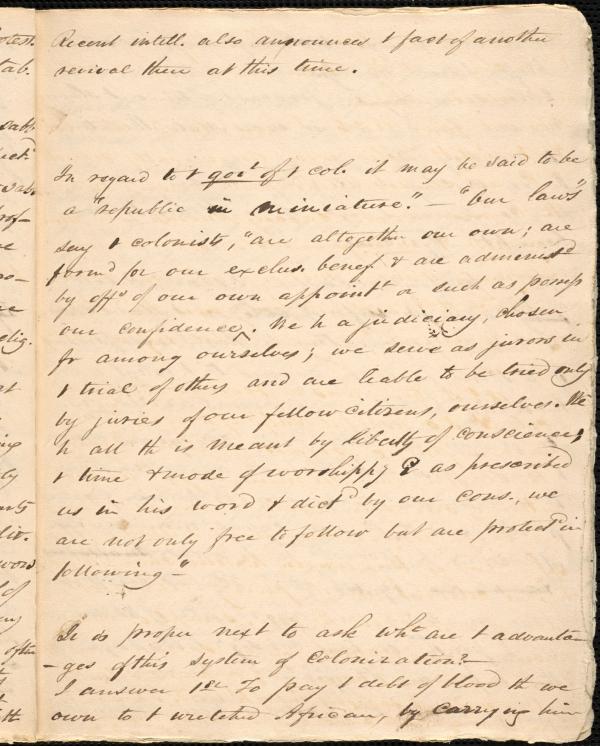 Recent intell. also announces t fact of another
revival there at this time.
In regard to t govt of t col. it may be said to be
a "republic in miniature." — "Our laws"
say t colonists, "are altogether our own; are
formd for our exclus. benefit & are administd
by offs of our own appointt or such as possess
our confidence ^. We h a judiciary, chosen
fr among ourselves; we serve as jurors in
t trial of others and are liable to be tried only
by juries of our fellow citizens, ourselves. We
h all th is meant by liberty of conscience;
t time & mode of worshippg G as prescribed
us in his word & dictd by our cons., we
are not only free to follow but are protectd in
following —"
It is proper next to ask wht are t advanta-
-ges of this system of colonization? —
I answer 1st To pay t debt of blood th we
own to t wretched African, by carrying him
otest.
tab.
relig.
at
ly
word
of
of the
th